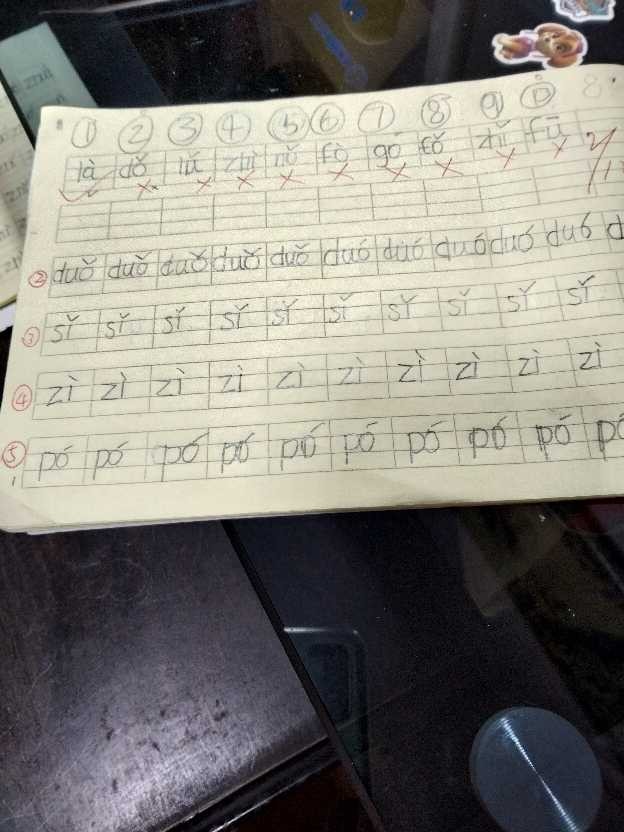 ① ② ③ ④ ⑤ ⑥ ⑦ ⑧ ⑨ ⑩
là dǒ lú zhì nǔ fò gó tǒ zhǐ fū
② duǒ duǒ duǒ duǒ duǒ duó duó duó duó duó d
③ sǐ sǐ sǐ sǐ sǐ sǐ sǐ sǐ sǐ sǐ
④ zì zì zì zì zì zì zì zì zì zì
⑤ pó pó pó pó pó pó pó pó pó pó